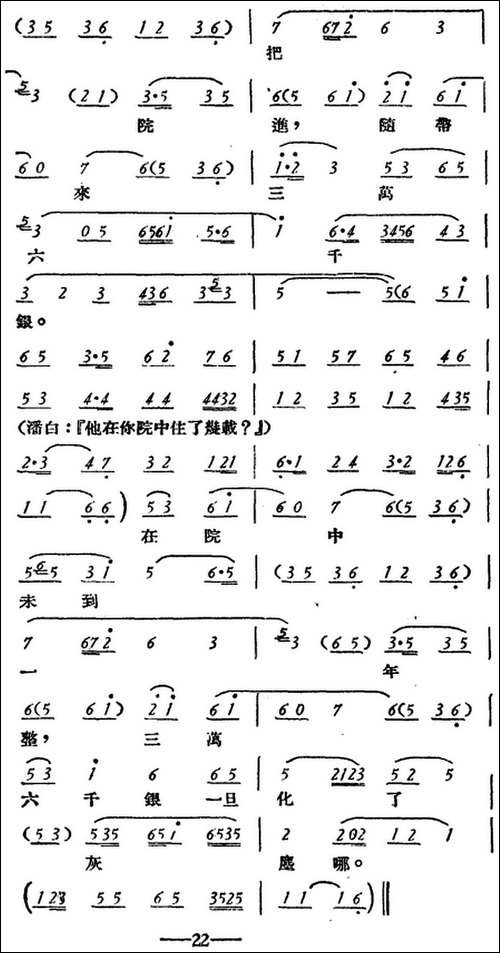 (35 36 12 36) | 7 672 6 3 |
把
53 (21) 3·5 35 | 6(5 61) 21 61 |
院 進， 隨 帶
60 7 6(5 36) | 1·2 3 53 65 |
來 三 萬
53 05 6561 5·6 | 1 6·4 3456 43 |
六 千
3 2 3 436 353 | 5 — 5(6 51 |
銀。
65 3·5 62 76 | 51 57 65 46 |
53 4·4 44 4432 | 12 35 12 435 |
(潘白：『他在你院中住了幾載？』)
2·3 47 32 121 | 6·1 24 3·2 126 |
11 66) 53 61 | 60 7 6(5 36) |
在 院 中
565 31 5 6·5 | (35 36 12 36) |
未 到
7 672 6 3 | 53 (65) 3·5 35 |
一 年
6(5 61) 21 61 | 60 7 6(5 36 |
整， 三 萬
53 1 6 65 | 5 2123 52 5 |
六 千 銀 一旦 化 了
(53) 535 651 6535 | 2 202 12 1 |
灰 塵 哪。
(123 55 65 3525 | 11 16) ‖
—22—